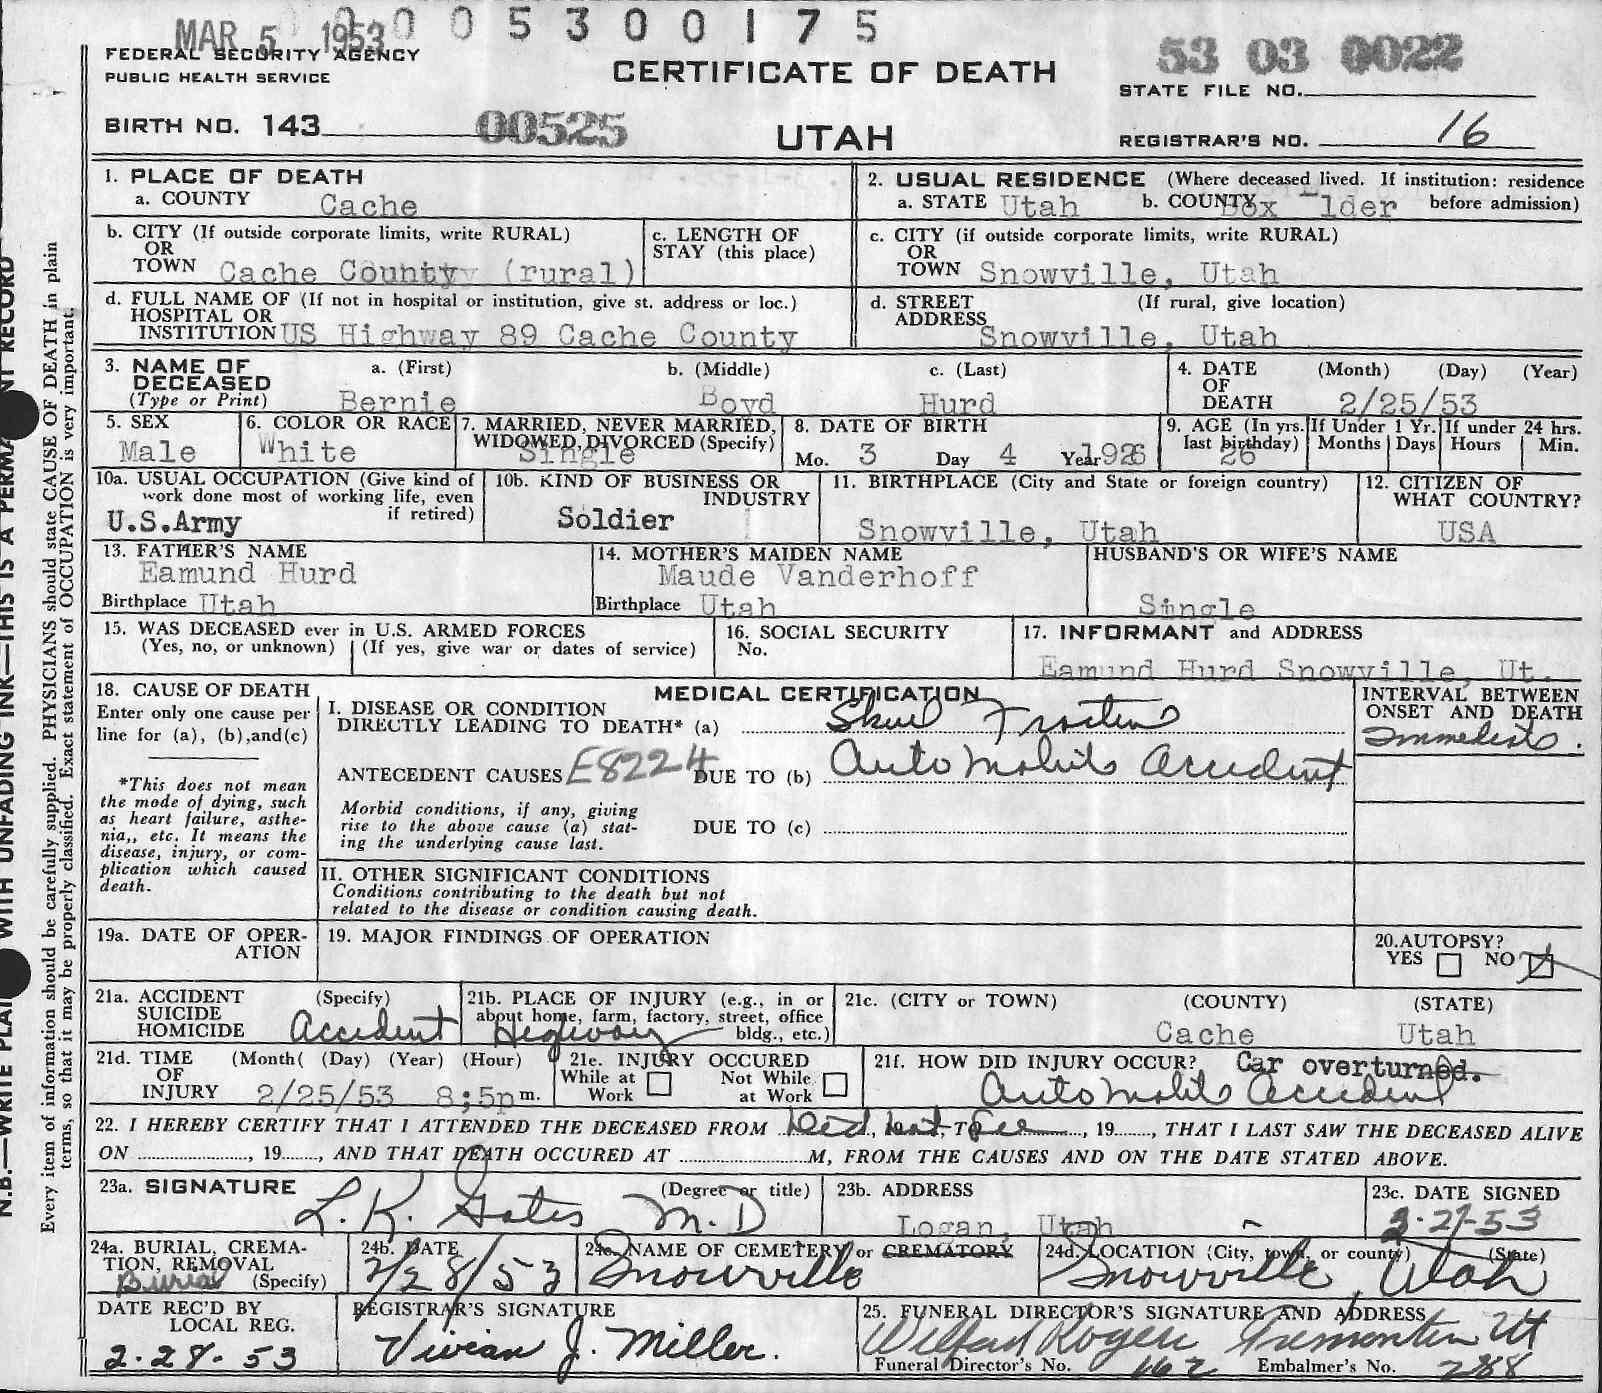 MAR 5 1953
0 0 0 5 3 0 0 1 7 5
FEDERAL SECURITY AGENCY
PUBLIC HEALTH SERVICE
CERTIFICATE OF DEATH
53 03 0022
STATE FILE NO.
BIRTH NO. 143 00525
UTAH
REGISTRAR'S NO. 16
1. PLACE OF DEATH
a. COUNTY Cache
b. CITY (If outside corporate limits, write RURAL)
OR
TOWN Cache County (rural)
c. LENGTH OF
STAY (this place)
d. FULL NAME OF (If not in hospital or institution, give st. address or loc.)
HOSPITAL OR
INSTITUTION US Highway 89 Cache County
2. USUAL RESIDENCE (Where deceased lived. If institution: residence
a. STATE Utah b. COUNTY Box Elder before admission)
c. CITY (if outside corporate limits, write RURAL)
OR
TOWN Snowville, Utah
d. STREET (If rural, give location)
ADDRESS Snowville, Utah
3. NAME OF a. (First) b. (Middle) c. (Last)
DECEASED
(Type or Print) Bernie Boyd Hurd
4. DATE (Month) (Day) (Year)
OF
DEATH 2/25/53
5. SEX
Male
6. COLOR OR RACE
White
7. MARRIED, NEVER MARRIED,
WIDOWED, DIVORCED (Specify)
Single
8. DATE OF BIRTH
Mo. 3 Day 4 Year 1926
9. AGE (In yrs.
last birthday)
26
If Under 1 Yr.
Months Days
If under 24 hrs.
Hours Min.
10a. USUAL OCCUPATION (Give kind of
work done most of working life, even
if retired)
U.S.Army
10b. KIND OF BUSINESS OR
INDUSTRY
Soldier
11. BIRTHPLACE (City and State or foreign country)
Snowville, Utah
12. CITIZEN OF
WHAT COUNTRY?
USA
13. FATHER'S NAME
Eamund Hurd
Birthplace Utah
14. MOTHER'S MAIDEN NAME
Maude Vanderhoff
Birthplace Utah
HUSBAND'S OR WIFE'S NAME
Single
15. WAS DECEASED ever in U.S. ARMED FORCES
(Yes, no, or unknown) (If yes, give war or dates of service)
16. SOCIAL SECURITY
No.
17. INFORMANT and ADDRESS
Eamund Hurd Snowville, Ut.
18. CAUSE OF DEATH
Enter only one cause per
line for (a), (b), and (c)
*This does not mean
the mode of dying, such
as heart failure, asthe-
nia,, etc. It means the
disease, injury, or com-
plication which caused
death.
MEDICAL CERTIFICATION
I. DISEASE OR CONDITION
DIRECTLY LEADING TO DEATH* (a) Skul
ANTECEDENT CAUSES E8224 DUE TO (b) Automobile accident
Morbid conditions, if any, giving
rise to the above cause (a) stat-
ing the underlying cause last.
DUE TO (c)
II. OTHER SIGNIFICANT CONDITIONS
Conditions contributing to the death but not
related to the disease or condition causing death.
INTERVAL BETWEEN
ONSET AND DEATH
Immediate.
19a. DATE OF OPER-
ATION
19. MAJOR FINDINGS OF OPERATION
20. AUTOPSY?
YES NO
21a. ACCIDENT (Specify)
SUICIDE
HOMICIDE Accident
21b. PLACE OF INJURY (e.g., in or
about home, farm, factory, street, office
bldg., etc.)
Higway
21c. (CITY or TOWN) (COUNTY) (STATE)
Cache Utah
21d. TIME (Month( (Day) (Year) (Hour)
OF
INJURY 2/25/53 8;5pm.
21e. INJURY OCCURED
While at Work Not While at Work
21f. HOW DID INJURY OCCUR? Car overturned.
Automobile accident
22. I HEREBY CERTIFY THAT I ATTENDED THE DECEASED FROM Did, 19 not, TO see, 19, THAT I LAST SAW THE DECEASED ALIVE
ON, 19, AND THAT DEATH OCCURED AT M, FROM THE CAUSES AND ON THE DATE STATED ABOVE.
23a. SIGNATURE (Degree or title)
L. K. Gates M.D
23b. ADDRESS
Logan, Utah
23c. DATE SIGNED
2-27-53
24a. BURIAL, CREMA-
TION, REMOVAL
Burial (Specify)
24b. DATE
2/28/53
24c. NAME OF CEMETERY or CREMATORY
Snowville
24d. LOCATION (City, town, or county) (State)
Snowville, Utah
DATE REC'D BY
LOCAL REG.
2-28-53
REGISTRAR'S SIGNATURE
Vivian J. Miller.
25. FUNERAL DIRECTOR'S SIGNATURE AND ADDRESS
Wilford Rogers Tremonton Ut
Funeral Director's No. 162 Embalmer's No. 288
N.B.—WRITE PLAI WITH UNFADING INK—THIS IS A PERMA NT RECORD
Every item of information should be carefully supplied. PHYSICIANS should state CAUSE OF DEATH in plain
terms, so that it may be properly classified. Exact statement of OCCUPATION is very important.